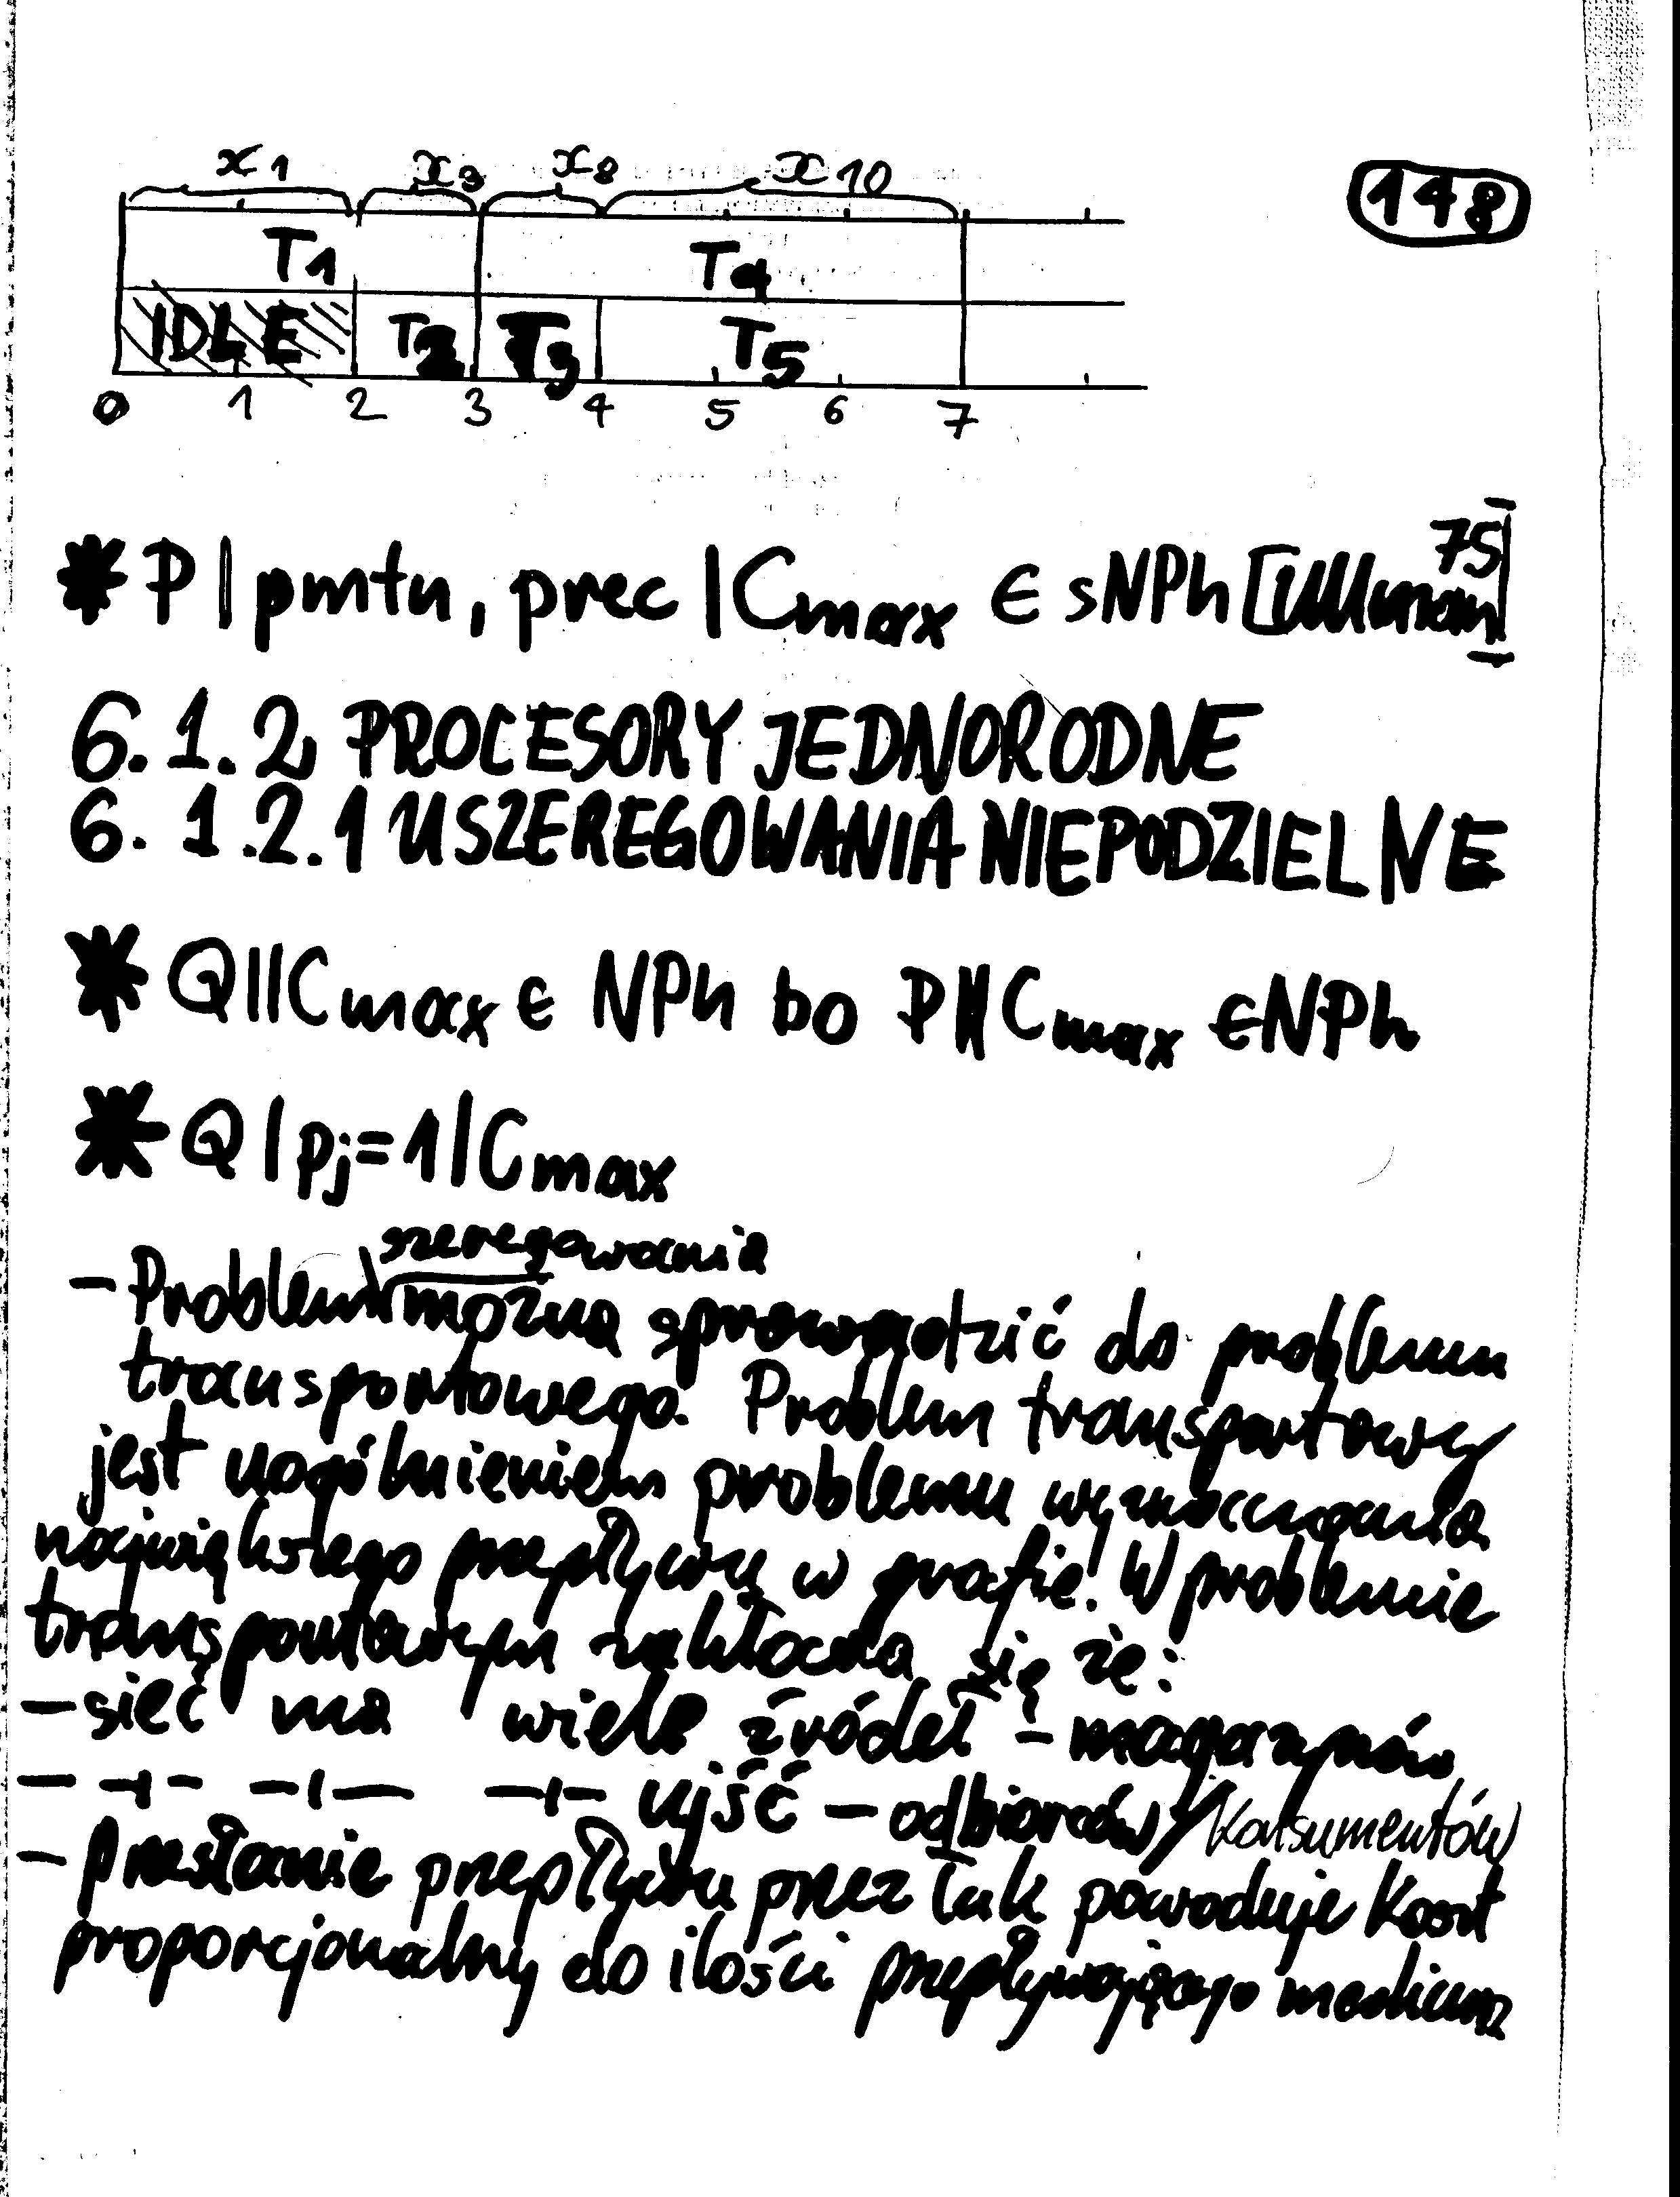 x1 x3 x8 x10
148
T1 T4
IDLE T2 T3 T5
0 1 2 3 4 5 6 7
* P | pmtn, prec | Cmax ∈ sNPh [Ullman 75]
6.1.2 PROCESORY JEDNORODNE
6.1.2.1 USZEREGOWANIA NIEPODZIELNE
* Q||Cmax ∈ NPh bo P||Cmax ∈ NPh
* Q | pj=1 | Cmax
szeregowania
- Problem można sprowadzić do problemu
transportowego. Problem transportowy
jest uogólnieniem problemu wyznaczania
największego przepływu w grafie! W problemie
transportowym zakłada się że:
- sieć ma wiele źródeł - magazynów
- -||- -||- -||- ujść - odbiorców / Konsumentów
- przesłanie przepływu przez łuk powoduje koszt
proporcjonalny do ilości przepływającego medium